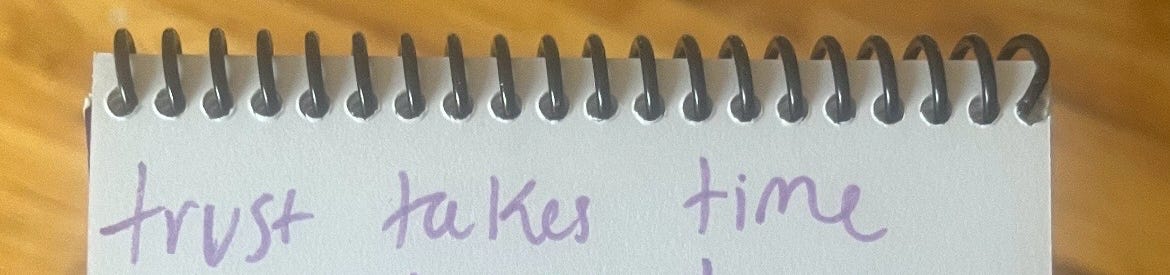 trust takes time